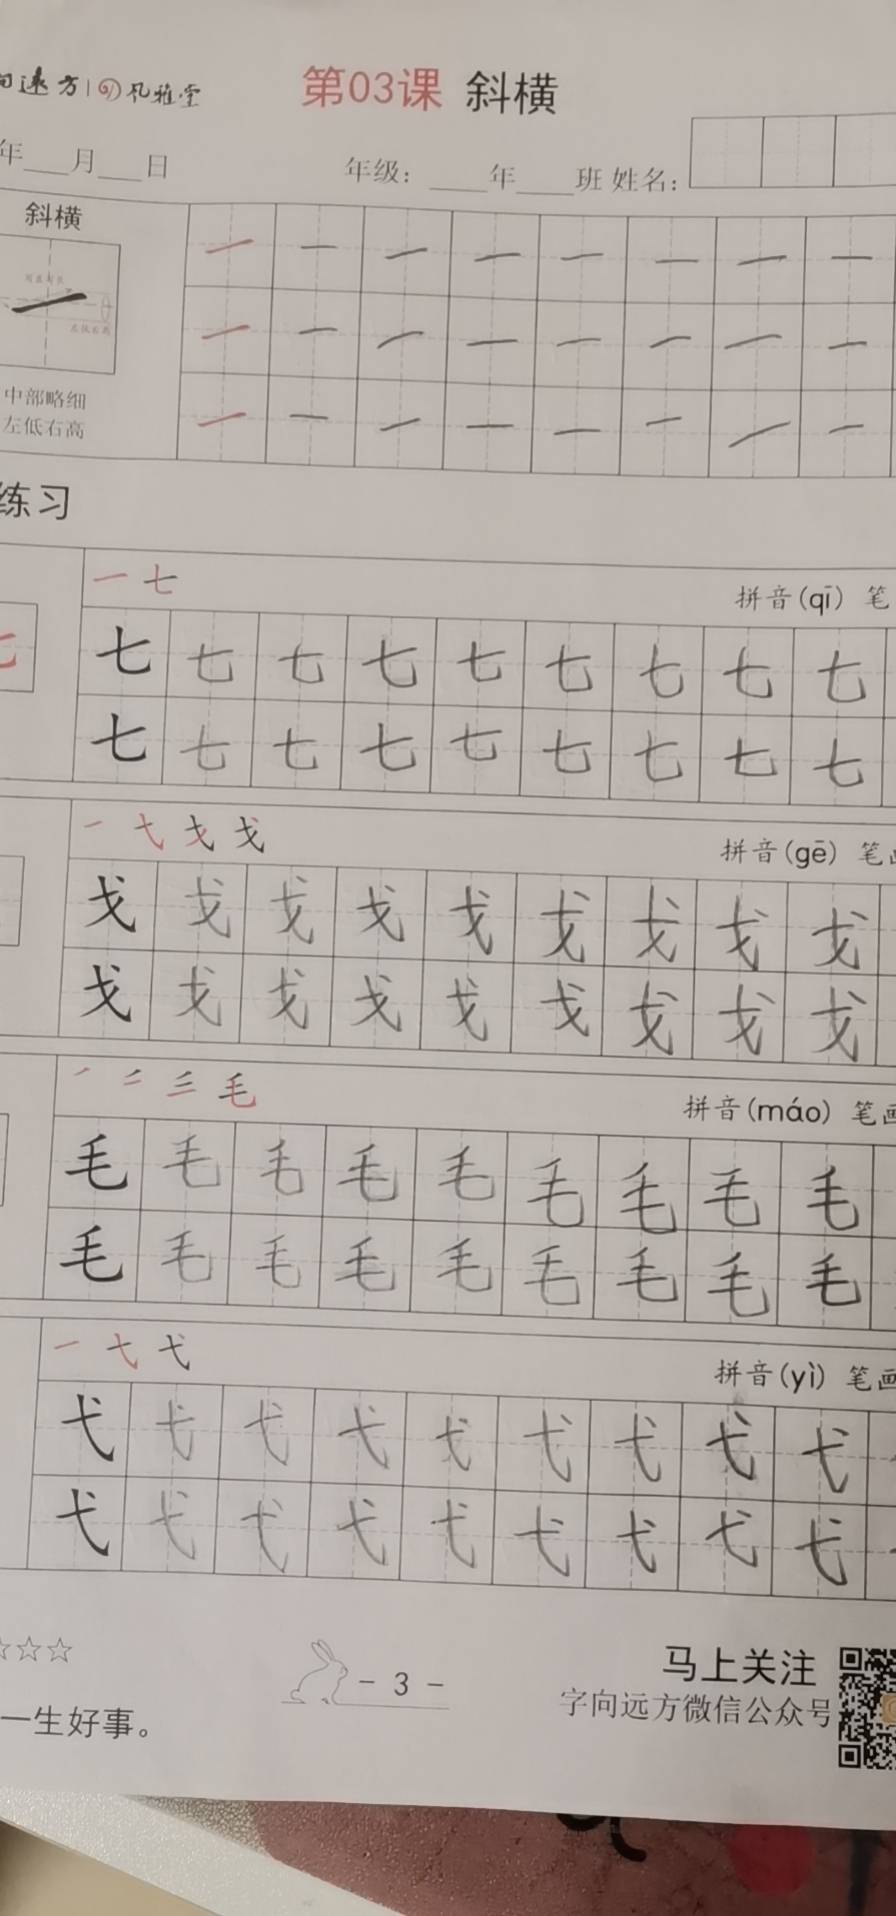 向远方 风雅堂
第03课 斜横
年 月 日 年级: 年 班 姓名:
斜横
一 一 一 一 一 一 一 一
一 一 一 一 一 一 一 一
中部略细
左低右高
一 一 一 一 一 一 一 一
练习
一 七
拼音(qī) 笔
七 七 七 七 七 七 七 七 七
七 七 七 七 七 七 七 七 七
一 弋 戈 戈
拼音(gē) 笔画
戈 戈 戈 戈 戈 戈 戈 戈 戈
戈 戈 戈 戈 戈 戈 戈 戈 戈
毛
拼音(máo) 笔画
毛 毛 毛 毛 毛 毛 毛 毛 毛
毛 毛 毛 毛 毛 毛 毛 毛 毛
一 弋 弋
拼音(yì) 笔画
弋 弋 弋 弋 弋 弋 弋 弋 弋
弋 弋 弋 弋 弋 弋 弋 弋 弋
☆☆☆
一生好事。
- 3 -
马上关注
字向远方微信公众号